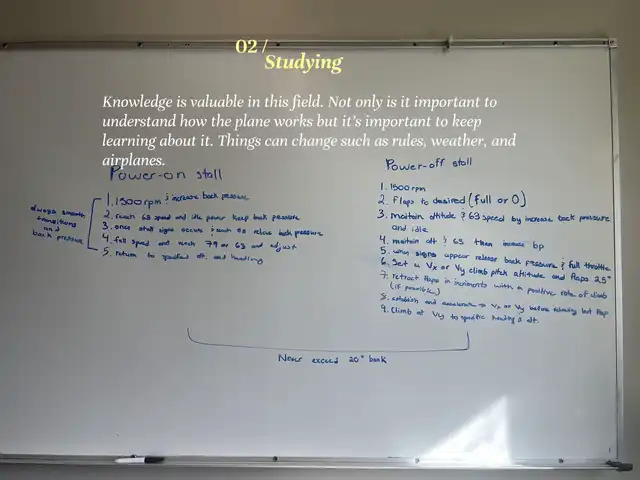 02 /
Studying
Knowledge is valuable in this field. Not only is it important to
understand how the plane works but it's important to keep
learning about it. Things can change such as rules, weather, and
airplanes.
Power-on stall
always smooth
transitions
and
back pressure
1. 1500 rpm & increase back pressure
2. reach 63 speed and idle power keep back pressure
3. once stall signs occurs & reach 55 release back pressure
4. full speed and reach 79 or 63 and adjust
5. return to specified alt. and heading
Power-off stall
1. 1500 rpm
2. Flaps to desired (full or 0)
3. maintain altitude & 63 speed by increase back pressure
and idle
4. maintain alt & 63 then increase bp
5. when signs appear release back pressure & full throttle
6. Set a Vx or Vy climb pitch attitude and flaps 25°
7. retract flaps in increments with a positive rate of climb
(if possible)
8. establish and accelerate to Vx or Vy before retracting last flap
9. Climb at Vy to specific heading & alt.
Never exceed 20° bank